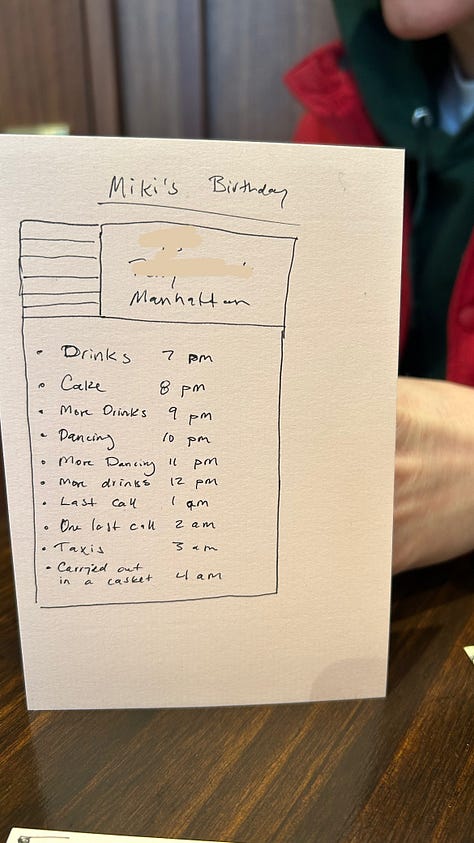 Miki's Birthday
Manhattan
• Drinks 7 pm
• Cake 8 pm
• More Drinks 9 pm
• Dancing 10 pm
• More Dancing 11 pm
• More drinks 12 pm
• Last call 1 am
• One last call 2 am
• Taxis 3 am
• Carried out
in a casket 4 am